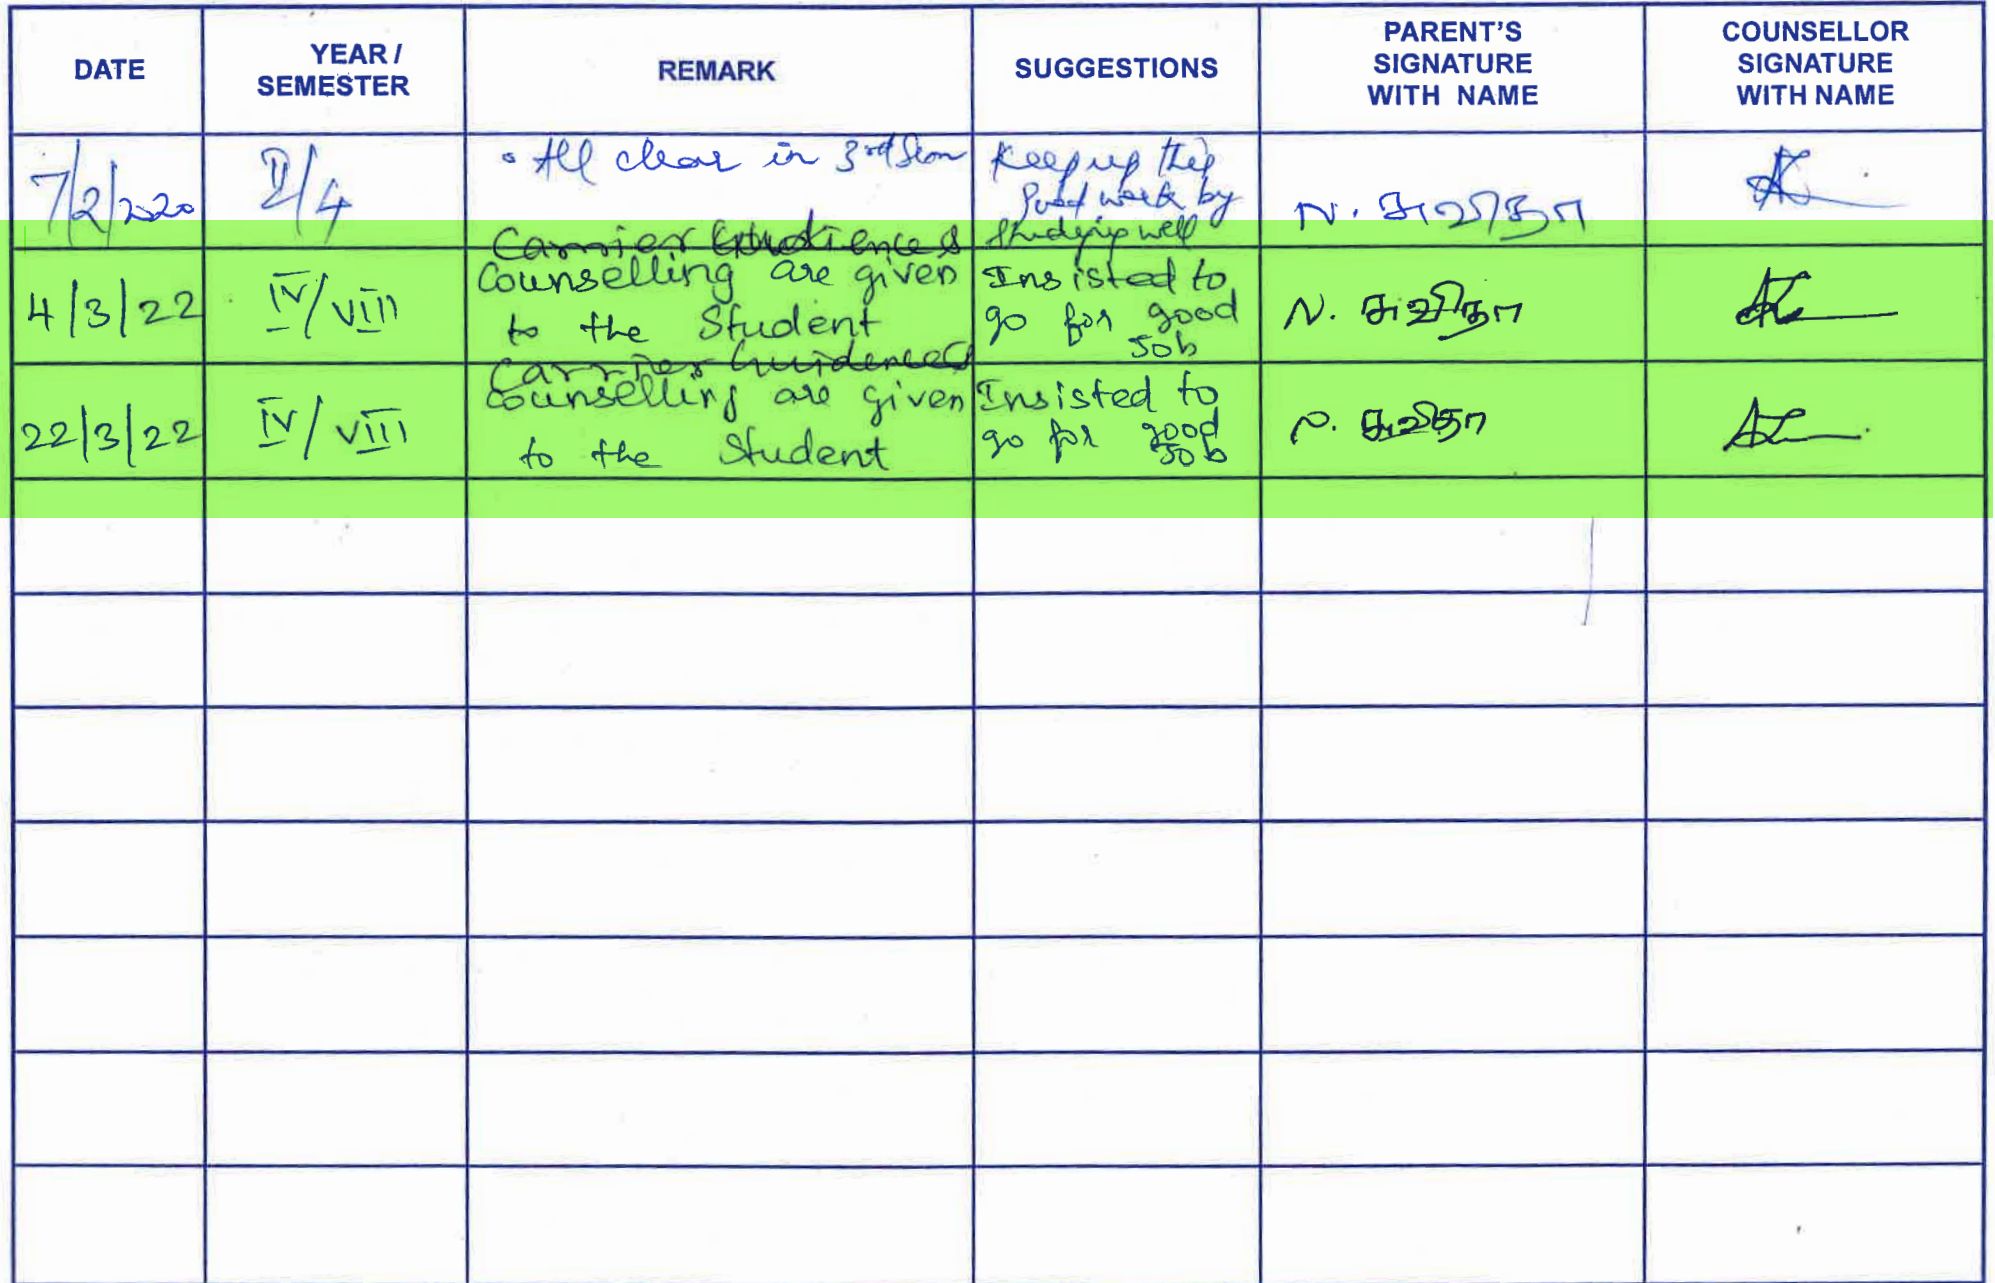 DATE
YEAR /
SEMESTER
REMARK
SUGGESTIONS
PARENT'S
SIGNATURE
WITH NAME
COUNSELLOR
SIGNATURE
WITH NAME
7/2/2020
II/4
All clear in 3rd Sem
Keep up this
Good work by
studying well
N. சுவிதா
4/3/22
IV/VIII
Carrier &
Counselling are given
to the Student
Insisted to
go for good
Job
N. சுவிதா
22/3/22
IV/VIII
Carrier Guidence &
Counselling are given
to the Student
Insisted to
go for good
Job
N. சுவிதா